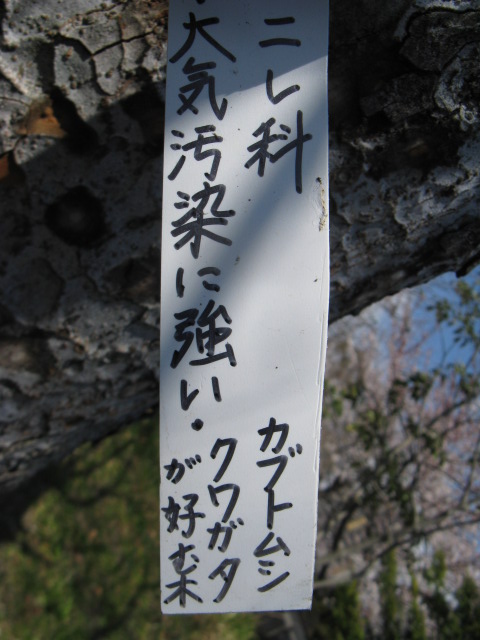 ニレ科
・大気汚染に強い・
カブトムシ
クワガタ
が好む木